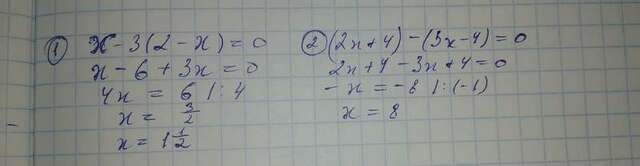 ① x - 3(2 - x) = 0
x - 6 + 3x = 0
4x = 6 | : 4
x = 3/2
x = 1 1/2
② (2x + 4) - (3x - 4) = 0
2x + 4 - 3x + 4 = 0
- x = - 8 | : (-1)
x = 8